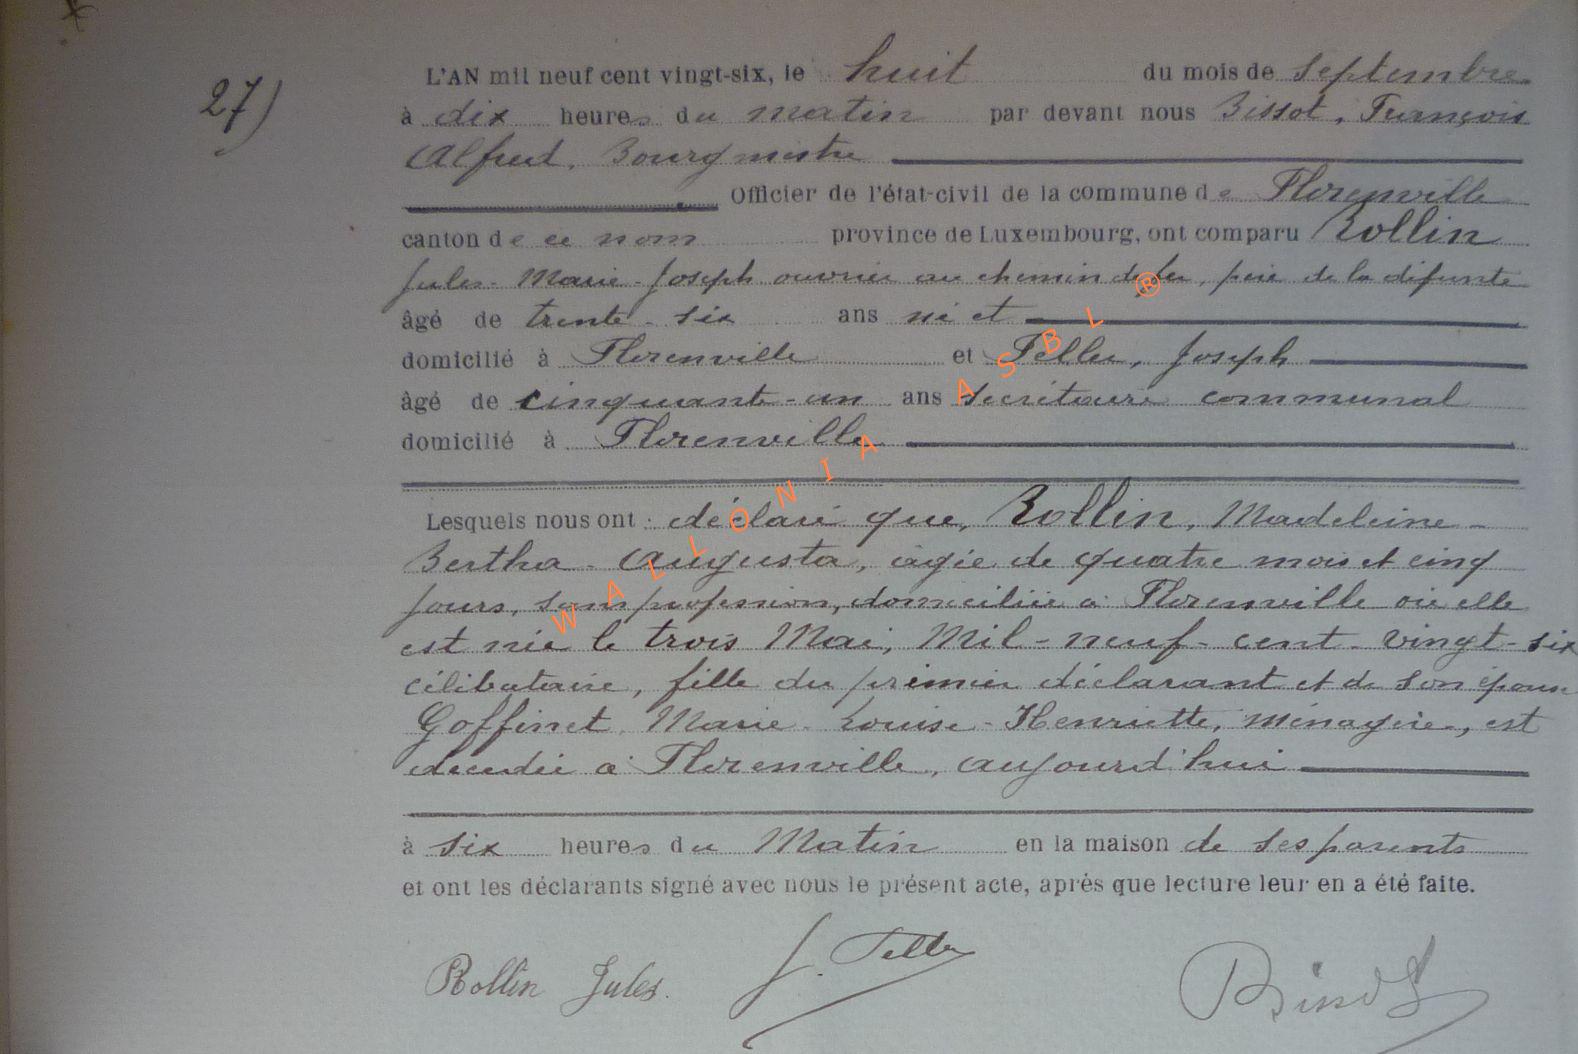 27)
L'AN mil neuf cent vingt-six, le huit du mois de septembre
à dix heures du matin par devant nous Bissot, François
Alfred, Bourgmestre
Officier de l'état-civil de la commune de Florenville
canton de ce nom province de Luxembourg, ont comparu Rollin
Jules-Marie-Joseph ouvrier au chemin de fer, père de la défunte
âgé de trente-six ans né et
domicilié à Florenville et Feller, Joseph
âgé de cinquante-un ans secrétaire communal
domicilié à Florenville
Lesquels nous ont déclaré que, Rollin, Madeleine-
Bertha-Augusta, agée de quatre mois et cinq
jours, sans profession, domiciliée à Florenville où elle
est née le trois Mai, Mil-neuf-cent-vingt-six
célibataire, fille du premier déclarant et de son épouse
Goffinet, Marie-Louise-Henriette, ménagère, est
décédée à Florenville, aujourd'hui
à six heures du Matin en la maison de ses parents
et ont les déclarants signé avec nous le présent acte, après que lecture leur en a été faite.
Rollin Jules. J. Feller Bissot
WALLONIA ASBL ®